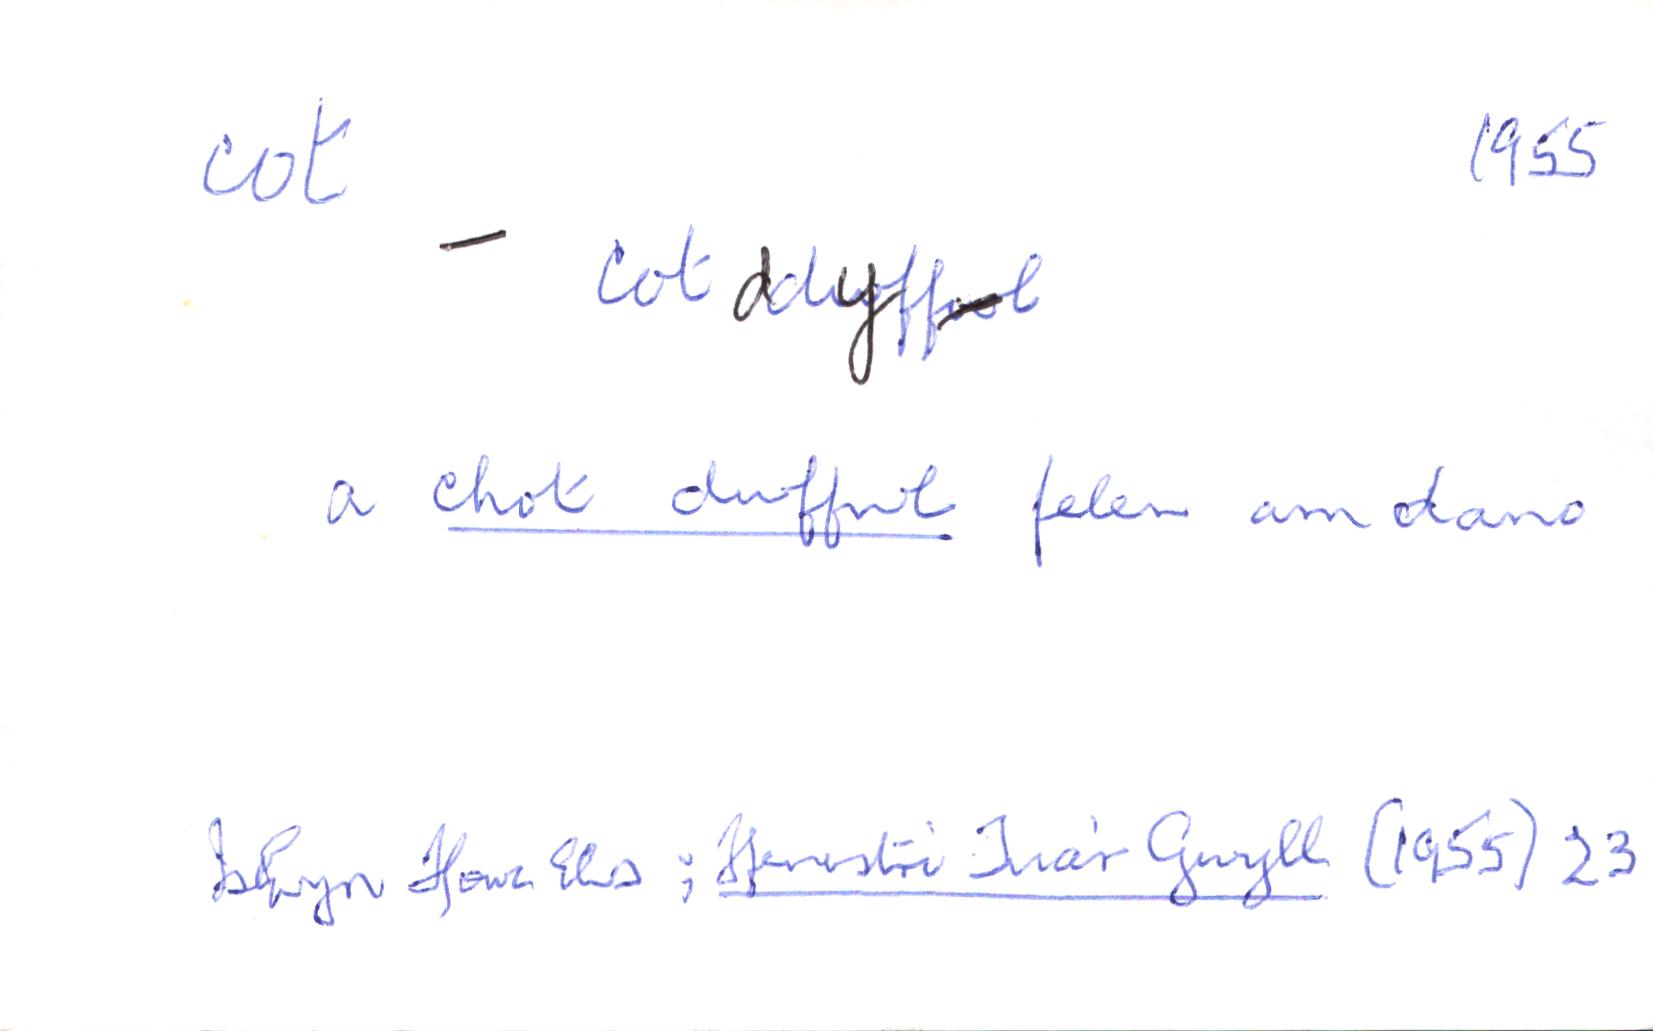 cot 1955
— cot ddyffl
a chot duffwl felen amdano
Islwyn Ffowc Elis ; Ffenestri Tua'r Gwyll (1955) 23